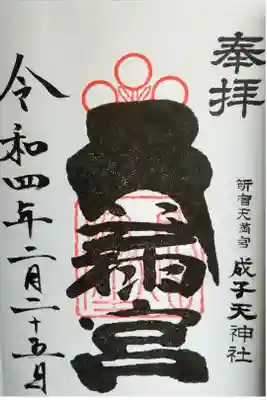 奉拝
新宿天満宮 成子天神社
天満宮
令和四年二月二十五日